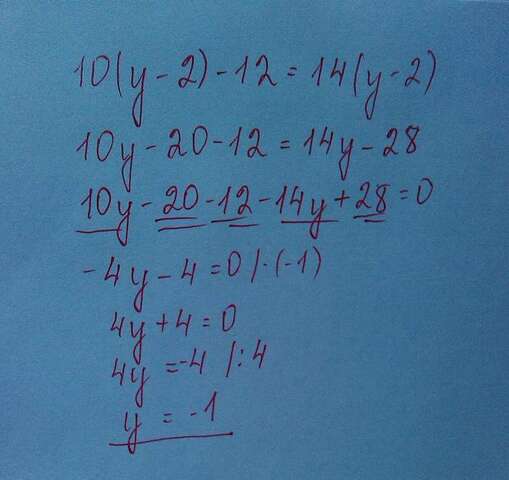 10(y-2)-12=14(y-2)
10y-20-12=14y-28
10y-20-12-14y+28=0
-4y-4=0/·(-1)
4y+4=0
4y=-4/:4
y=-1